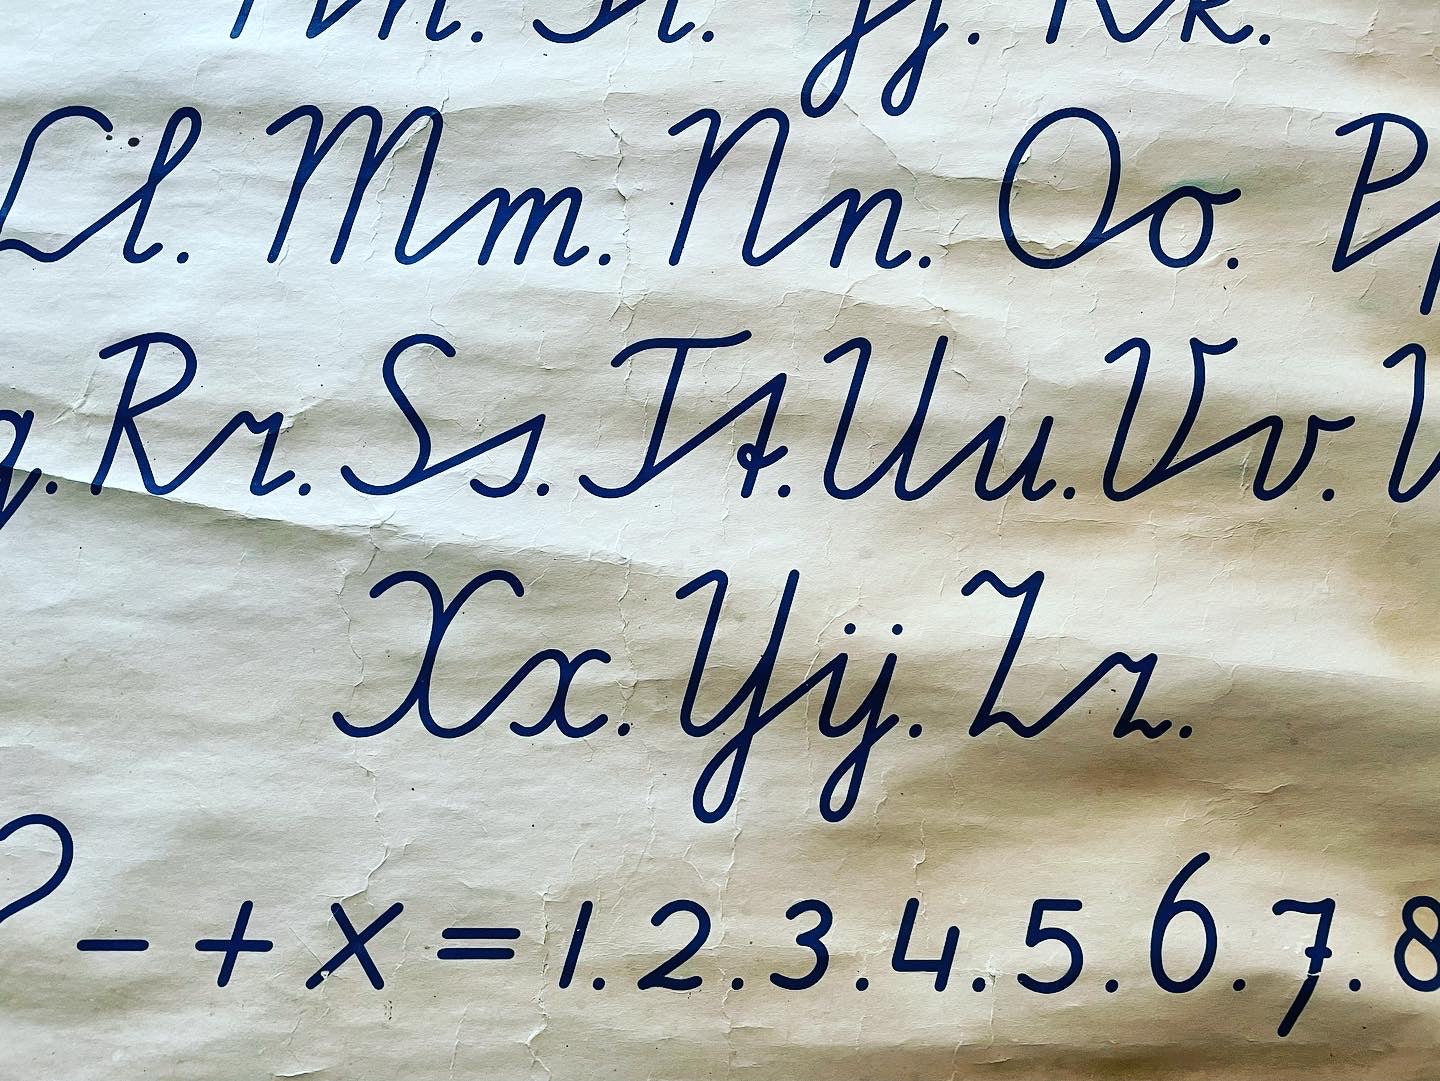 Hh. Ii. Jj. Kk.
Ll. Mm. Nn. Oo. Pp
q. Rr. Ss. Tt. Uu. Vv. W
Xx. Yÿ. Zz.
? - + x = 1. 2. 3. 4. 5. 6. 7. 8